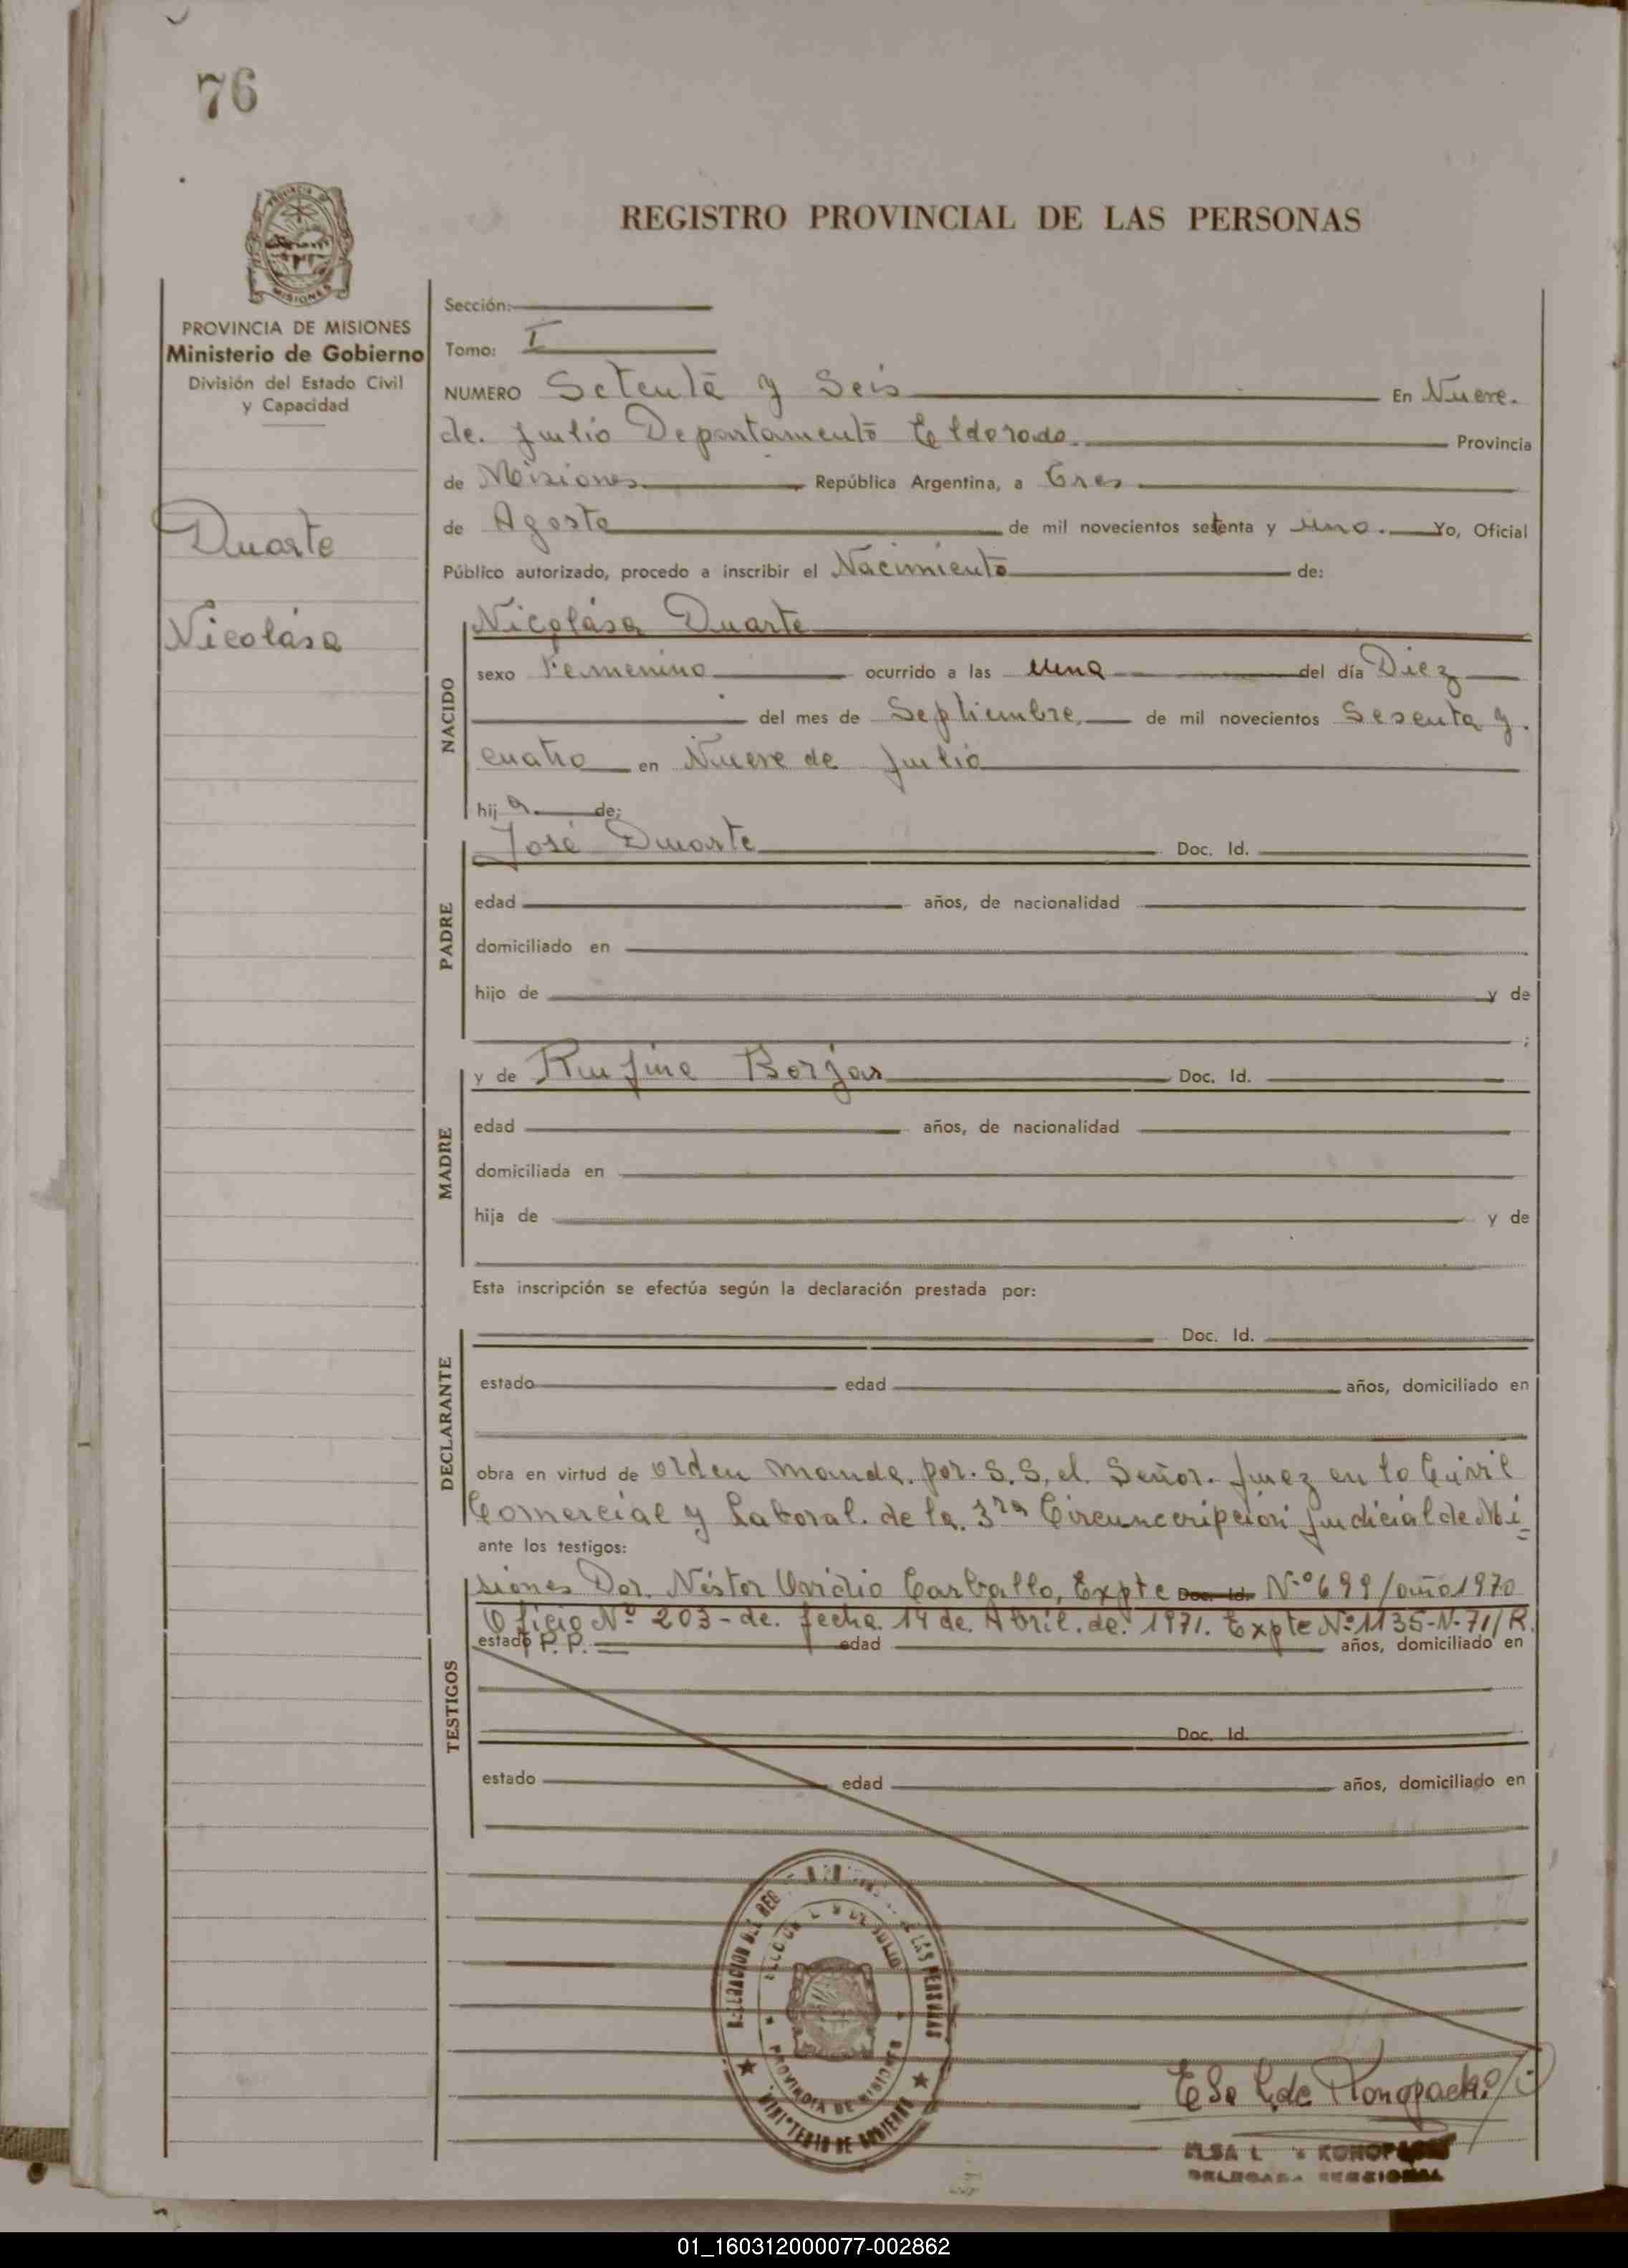 76
REGISTRO PROVINCIAL DE LAS PERSONAS
MISIONES
PROVINCIA DE MISIONES
Ministerio de Gobierno
División del Estado Civil
y Capacidad
Duarte
Nicolása
Sección:
Tomo: I
NUMERO Setenta y Seis En Nueve.
de. Julio Departamento Eldorado. Provincia
de Misiones República Argentina, a Tres
de Agosto de mil novecientos setenta y uno. Yo, Oficial
Público autorizado, procedo a inscribir el Nacimiento de:
NACIDO
Nicolása Duarte
sexo Femenino ocurrido a las Una del día Diez
del mes de Septiembre. de mil novecientos Sesenta y.
cuatro en Nueve de Julio
hij a de:
PADRE
José Duarte Doc. Id.
edad años, de nacionalidad
domiciliado en
hijo de y de
;
MADRE
y de Rufina Borjas Doc. Id.
edad años, de nacionalidad
domiciliada en
hija de y de
Esta inscripción se efectúa según la declaración prestada por:
DECLARANTE
Doc. Id.
estado edad años, domiciliado en
obra en virtud de orden manda. por. S. S, el. Señor. Juez en lo Civil
Comercial y Laboral. de la. 3ra Circunceripción Judicial de Mi=
ante los testigos:
TESTIGOS
siones Dor. Néstor Ovidio Carballo, Expte Doc. Id. N.º 699/año 1970
Oficio Nº 203- de. fecha 14 de. Abril. de. 1971. Expte Nº 1135-N-71/R.
estado P. P. edad años, domiciliado en
Doc. Id.
estado edad años, domiciliado en
DELEGACION DEL REG LAS PERSONAS
DE JULIO
PROVINCIA DE MISIONES
MINISTERIO DE GOBIERNO
Elsa L de Konopacki
ELSA L KONOPACKI
DELEGADA REGIONAL
01_160312000077-002862